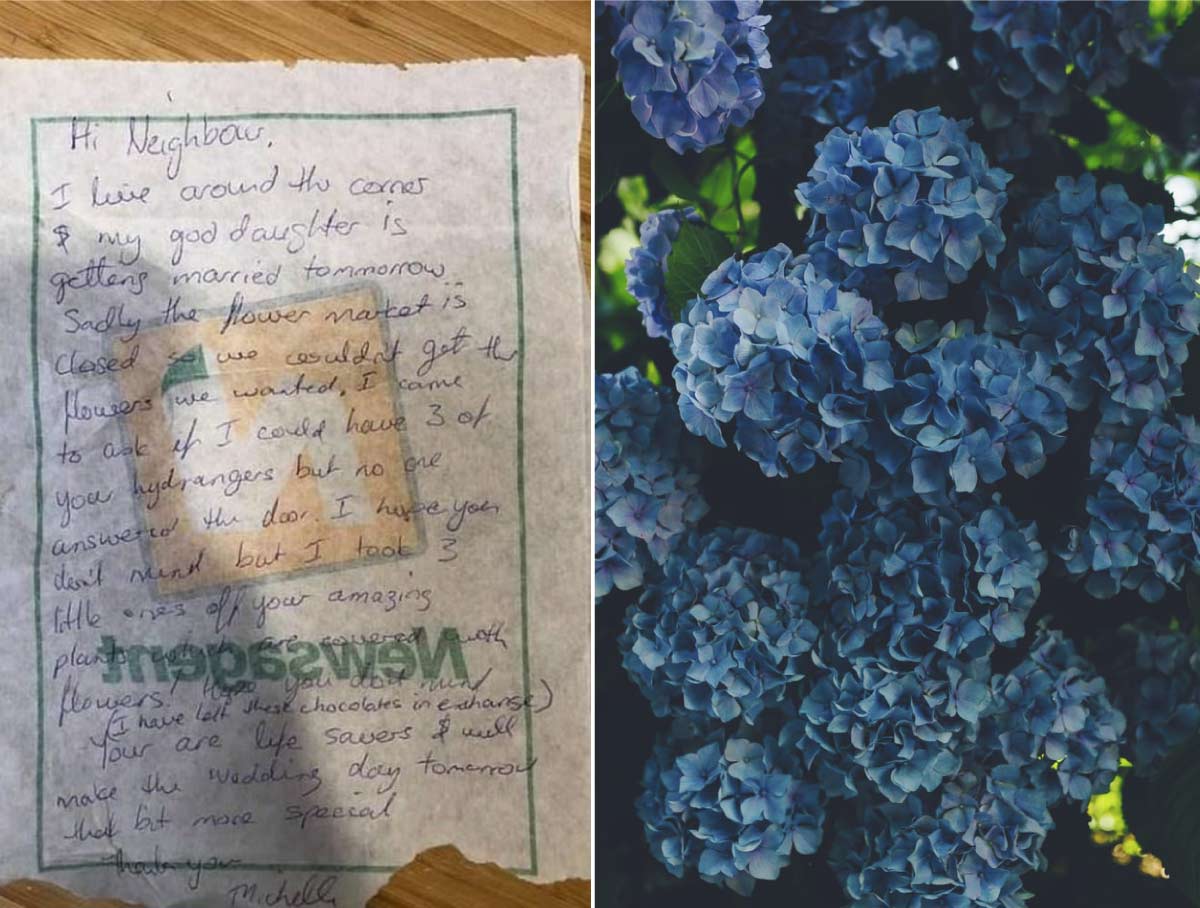 Hi Neighbour,
I live around the corner
& my god daughter is
getteng married tommorrow
Sadly the flower market is
closed so we couldn't get the
flowers we wanted. I came
to ask if I could have 3 of
your hydrangers but no one
answered the door. I hope you
don't mind but I took 3
little ones off your amazing
plants which are covered with
Newsagent
flowers! Hope you don't mind
(I have left these chocolates in exchange)
Your are life savers & will
make the wedding day tomorrow
that bit more special
Thank you
Michelle